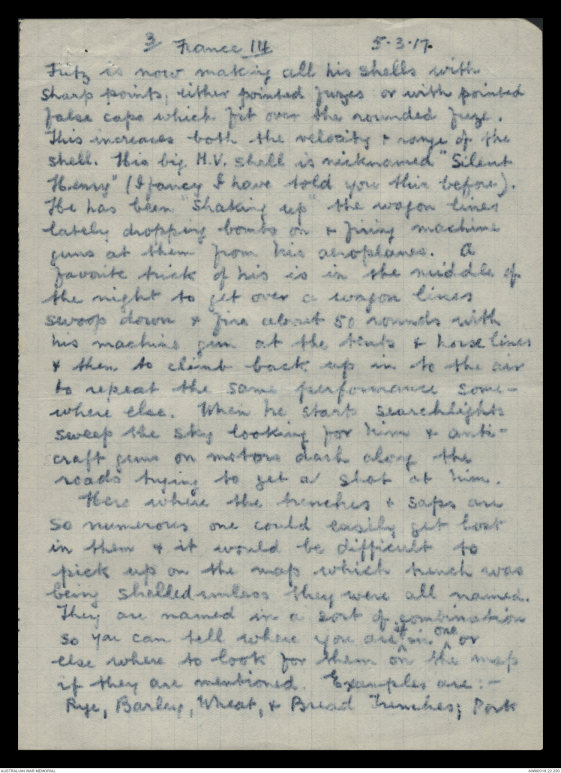 3 France 14 5.3.17.
Fritz is now making all his shells with
sharp points, either pointed fuzes or with pointed
false caps which fit over the rounded fuze.
This increases both the velocity & range of the
shell. His big H.V. shell is nicknamed "Silent
Henry" (I fancy I have told you this before).
He has been "shaking up" the wagon lines
lately dropping bombs on & firing machine
guns at them from his aeroplanes. A
favorite trick of his is in the middle of
the night to get over a wagon lines
swoop down & fire about 50 rounds with
his machine gun at the tents & horse lines
& then to climb back up in to the air
to repeat the same performance some-
where else. When he starts searchlights
sweep the sky looking for him & anti-
craft guns on motors dash along the
roads trying to get a shot at him.
Here where the trenches & saps are
so numerous one could easily get lost
in them & it would be difficult to
pick up on the map which trench was
being shelled unless they were all named.
They are named in a sort of combination
so you can tell where you are if in one or
else where to look for them on the map
if they are mentioned. Examples are :-
Rye, Barley, Wheat, & Bread Trenches; Pork
AUSTRALIAN WAR MEMORIAL